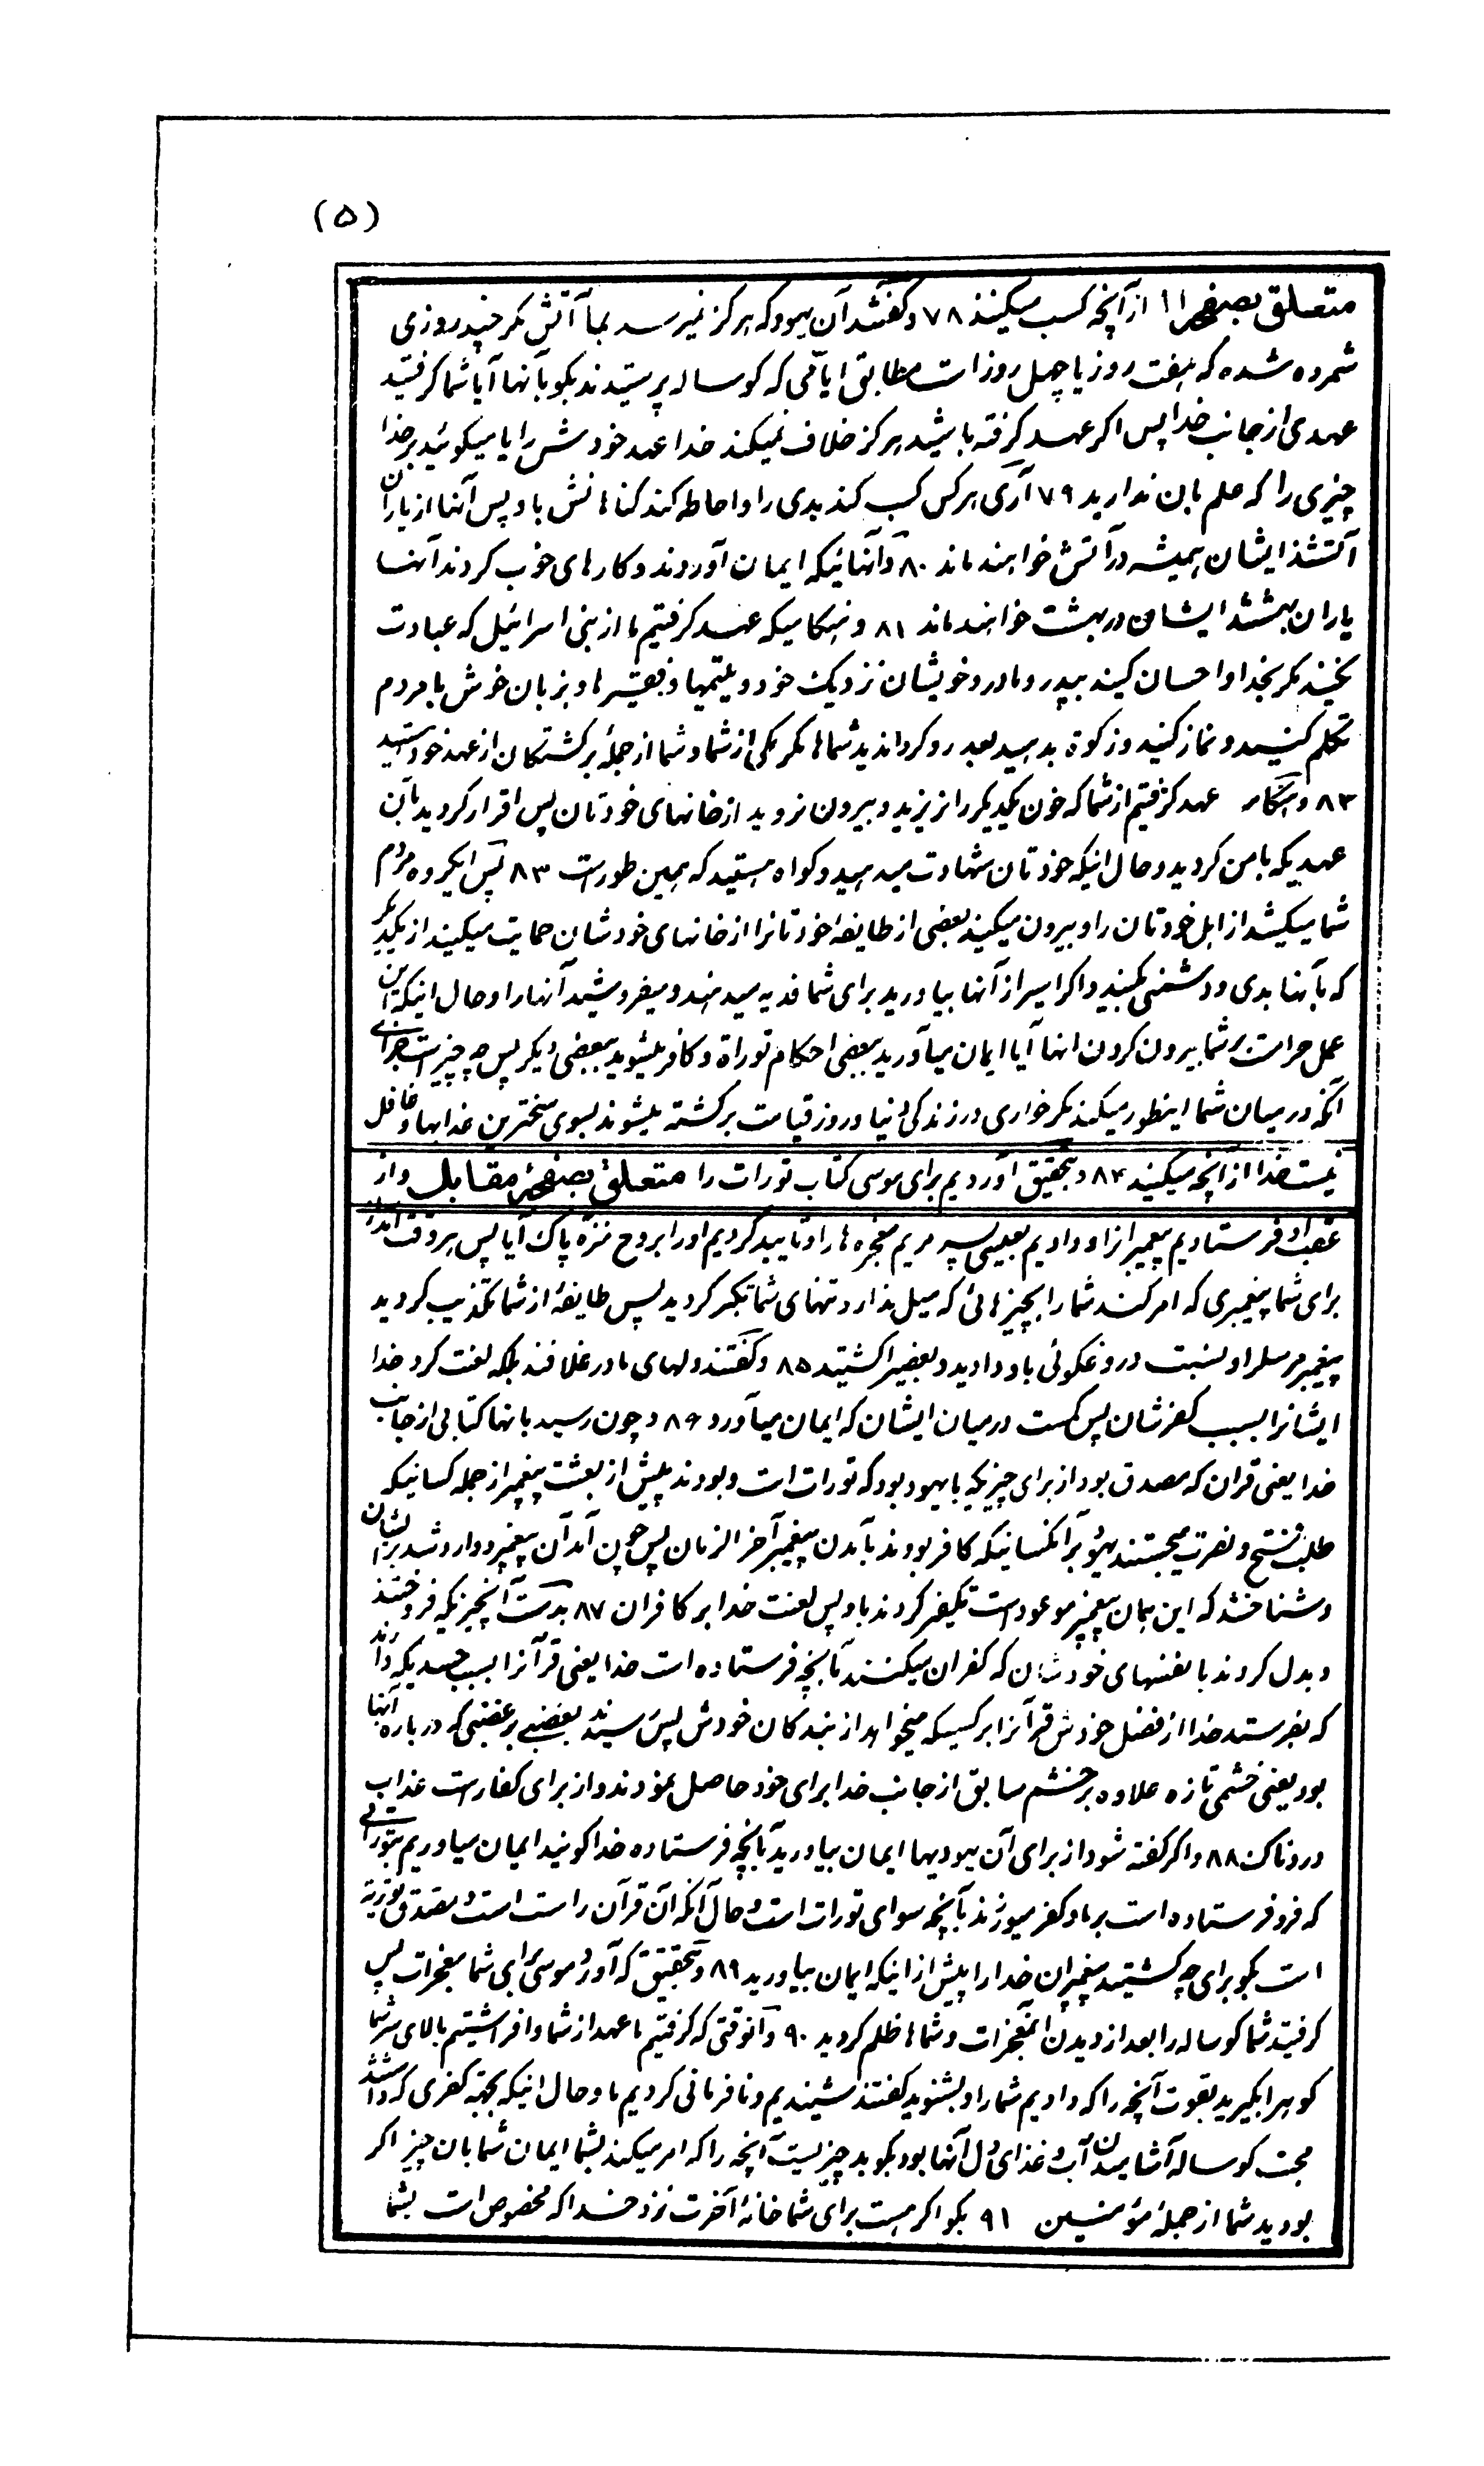 (۵)
متعلق بصفحه ۱۱ از آنچه کسب میکنند ۷۸ و گفتند آن یهود که هرگز نمیرسد بما آتش مگر چند روزی
شمرده شده که هفت روز یا چهل روز است مطابق ایامی که گوساله پرستیدند بگو بآنها آیا شما گرفتید
عهدی از جانب خدا پس اگر عهد گرفته باشید هرگز خلاف نمیکند خدا عهد خودش را یا میگوئید بر خدا
چیزی را که علم بان ندارید ۷۹ آری هر کس کسب کند بدی را و احاطه کند گناهانش باو پس آنها از یاران
آتشند ایشان همیشه در آتش خواهند ماند ۸۰ و آنهائیکه ایمان آوردند و کارهای خوب کردند آنها
یاران بهشتند ایشان در بهشت خواهند ماند ۸۱ و هنگامیکه عهد گرفتیم ما از بنی اسرائیل که عبادت
نکنید مگر بخدا و احسان کنید بپدر و مادر و خویشان نزدیک خود و یتیمها و فقیرها و بزبان خوش با مردم
تکلم کنید و نماز کنید و زکوة بدهید بعد رو گرداندید شماها مگر یکی از شما و شما از جمله برگشتگان از عهد خود هستید
۸۳ و هنگام عهد گرفتیم از شما که خون یکدیگر را نریزید و بیرون نروید از خانهای خودتان پس اقرار کردید بآن
عهدیکه با من کردید و حال اینکه خودتان شهادت میدهید و گواه هستید که همین طور است ۸۳ پس ایگروه مردم
شما میکشید از اهل خودتان را و بیرون میکنید بعضی از طایفه خودتانرا از خانهای خودشان حمایت میکنید از یکدیگر
که بآنها بدی و دشمنی بکنید و اگر اسیر از آنها بیاورید برای شما فدیه میدهند و میفروشید آنها را و حال اینکه این
عمل حرامست بر شما بیرون کردن انها آیا ایمان میآورید ببعضی احکام توراة و کافر میشوید ببعضی دیگر پس چه چیز است جزای
آنکه در میان شما اینطور میکند مگر خواری در زندگی دنیا و روز قیامت برگشته میشوند بسوی سختترین عذابها و غافل
نیست خدا از آنچه میکنید ۸۴ و بتحقیق آوردیم برای موسی کتاب تورات را متعلق بصفحه مقابل و از
عقب او فرستادیم پیغمبرانرا و دادیم بعیسی پسر مریم معجزه ها را و تایید کردیم او را بروح منزه پاک آیا پس هر وقت آمد
برای شما پیغمبری که امر کند شما را بچیزهائی که میل ندارد تنهای شما تکبر کردید پس طایفه از شما تکذیب کردید
پیغمبر مرسلرا و نسبت دروغگوئی باو دادید و بعضیرا کشتید ۸۵ و گفتند دلهای ما در غلافند بلکه لعنت کرد خدا
ایشانرا بسبب کفرشان پس کمست در میان ایشان که ایمان میآورد ۸۶ و چون رسید بانها کتابی از جانب
خدا یعنی قران که مصدق بود از برای چیزیکه با یهود بود که تورات است و بودند پیش از بعثت پیغمبر از جمله کسانیکه
طلب فتح و نصرت میجستند یهود بر آنکسانیکه کافر بودند بآمدن پیغمبر آخر الزمان پس چون آمد آن پیغمبر و وارد شد بر ایشان
و شناختند که این همان پیغمبر موعود است تکفیر کردند باو پس لعنت خدا بر کافران ۸۷ بد است آنچیزیکه فروختند
و بدل کردند با نفسهای خودشان که کفران میکنند بآنچه فرستاده است خدا یعنی قرآنرا بسبب حسدیکه دارند
که بفرستد خدا از فضل خودش قرآنرا بر کسیکه میخواهد از بندگان خودش پس رسیدند بغضبی بر غضبی که درباره آنها
بود یعنی خشمی تازه علاوه بر خشم سابق از جانب خدا برای خود حاصل نمودند و از برای کفار است عذاب
دردناک ۸۸ و اگر گفته شود از برای آن یهودیها ایمان بیاورید بآنچه فرستاده خدا گویند ایمان میاوریم بتوراتی
که فرو فرستاده است بر ما و کفر میورزند بآنچه سوای تورات است و حال آنکه آن قرآن راست است و مصدق توریة
است بگو برای چه کشتید پیغمبران خدا را پیش از اینکه ایمان بیاورید ۸۹ و بتحقیق که آورد موسی برای شما معجزات پس
گرفتید شما گوساله را بعد از دیدن آنمعجزات و شماها ظلم کردید ۹۰ و آنوقتی که گرفتیم ما عهد از شما و افراشتیم بالای سر شما
کوه را بگیرید بقوت آنچه را که دادیم شما را و بشنوید گفتند شنیدیم و نافرمانی کردیم ما و حال اینکه بجهة کفری که داشتند
محبت گوساله آشامیدن آب و غذای دل آنها بود بگو بد چیزیست آنچه را که امر میکند بشما ایمان شما بان چیز اگر
بودید شما از جمله مؤمنین ۹۱ بگو اگر هست برای شما خانه آخرت نزد خدا که مخصوص است بشما